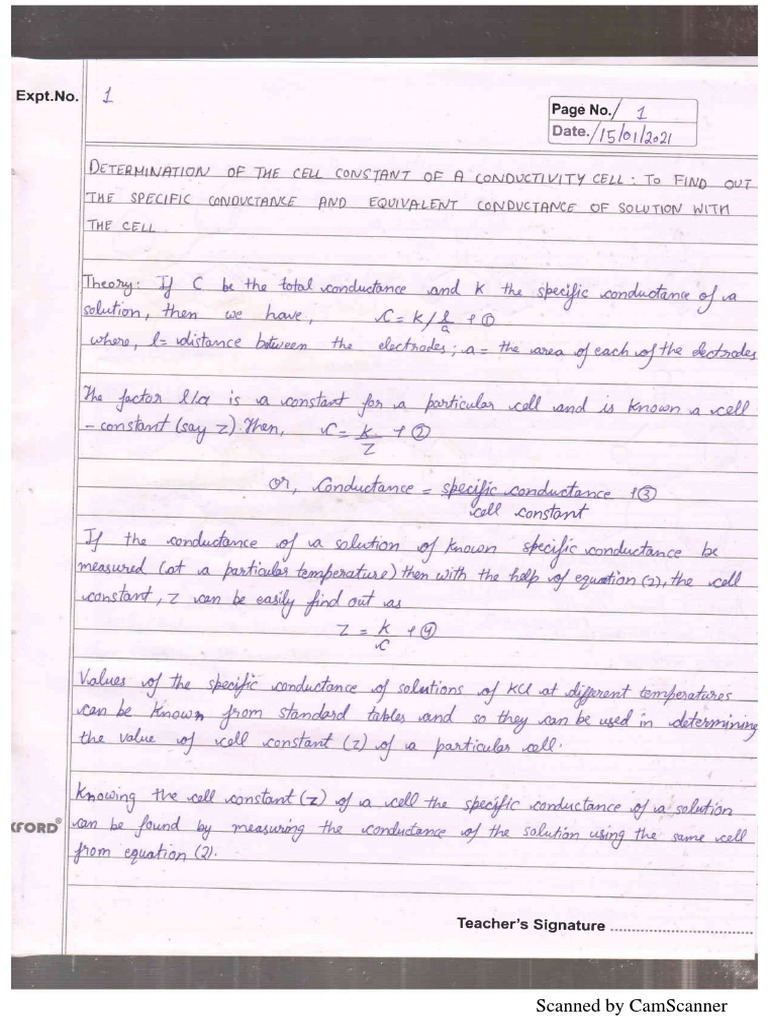 Expt.No. 1
Page No. 1
Date. 15/01/2021
DETERMINATION OF THE CELL CONSTANT OF A CONDUCTIVITY CELL: TO FIND OUT
THE SPECIFIC CONDUCTANCE AND EQUIVALENT CONDUCTANCE OF SOLUTION WITH
THE CELL
Theory: If C be the total conductance and K the specific conductance of a
solution, then we have, C = K / l/a → ①
where, l = distance between the electrodes; a = the area of each of the electrodes
The factor l/a is a constant for a particular cell and is known a cell
- constant (say z). Then, C = K/Z → ②
or, Conductance = specific conductance / cell constant → ③
If the conductance of a solution of known specific conductance be
measured (at a particular temperature) then with the help of equation (2), the cell
constant, z can be easily find out as
Z = K/C → ④
Values of the specific conductance of solutions of KCl at different temperatures
can be known from standard tables and so they can be used in determining
the value of cell constant (z) of a particular cell.
Knowing the cell constant (z) of a cell the specific conductance of a solution
XFORD® can be found by measuring the conductance of the solution using the same cell
from equation (2).
Teacher's Signature ..............................
Scanned by CamScanner